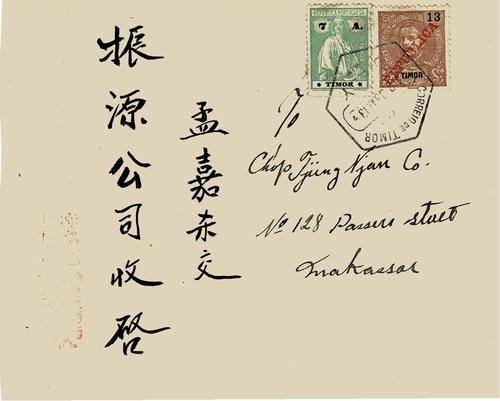 REPUBLICA PORTUGUESA
7 A.
TIMOR
13
REPUBLICA
TIMOR
CORREIO DE TIMOR
To
Chop Tjing Njan Co.
No 128 Passers street
Makassar
孟嘉朩交
振源公司收啓